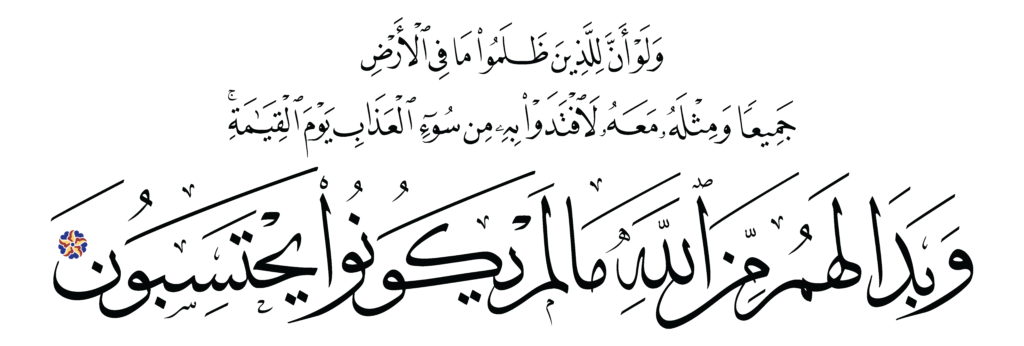 وَلَوْ أَنَّ لِلَّذِينَ ظَلَمُوا۟ مَا فِى ٱلْأَرْضِ
جَمِيعًا وَمِثْلَهُۥ مَعَهُۥ لَٱفْتَدَوْا۟ بِهِۦ مِن سُوٓءِ ٱلْعَذَابِ يَوْمَ ٱلْقِيَٰمَةِ ۚ
وَبَدَا لَهُم مِّنَ ٱللَّهِ مَا لَمْ يَكُونُوا۟ يَحْتَسِبُونَ